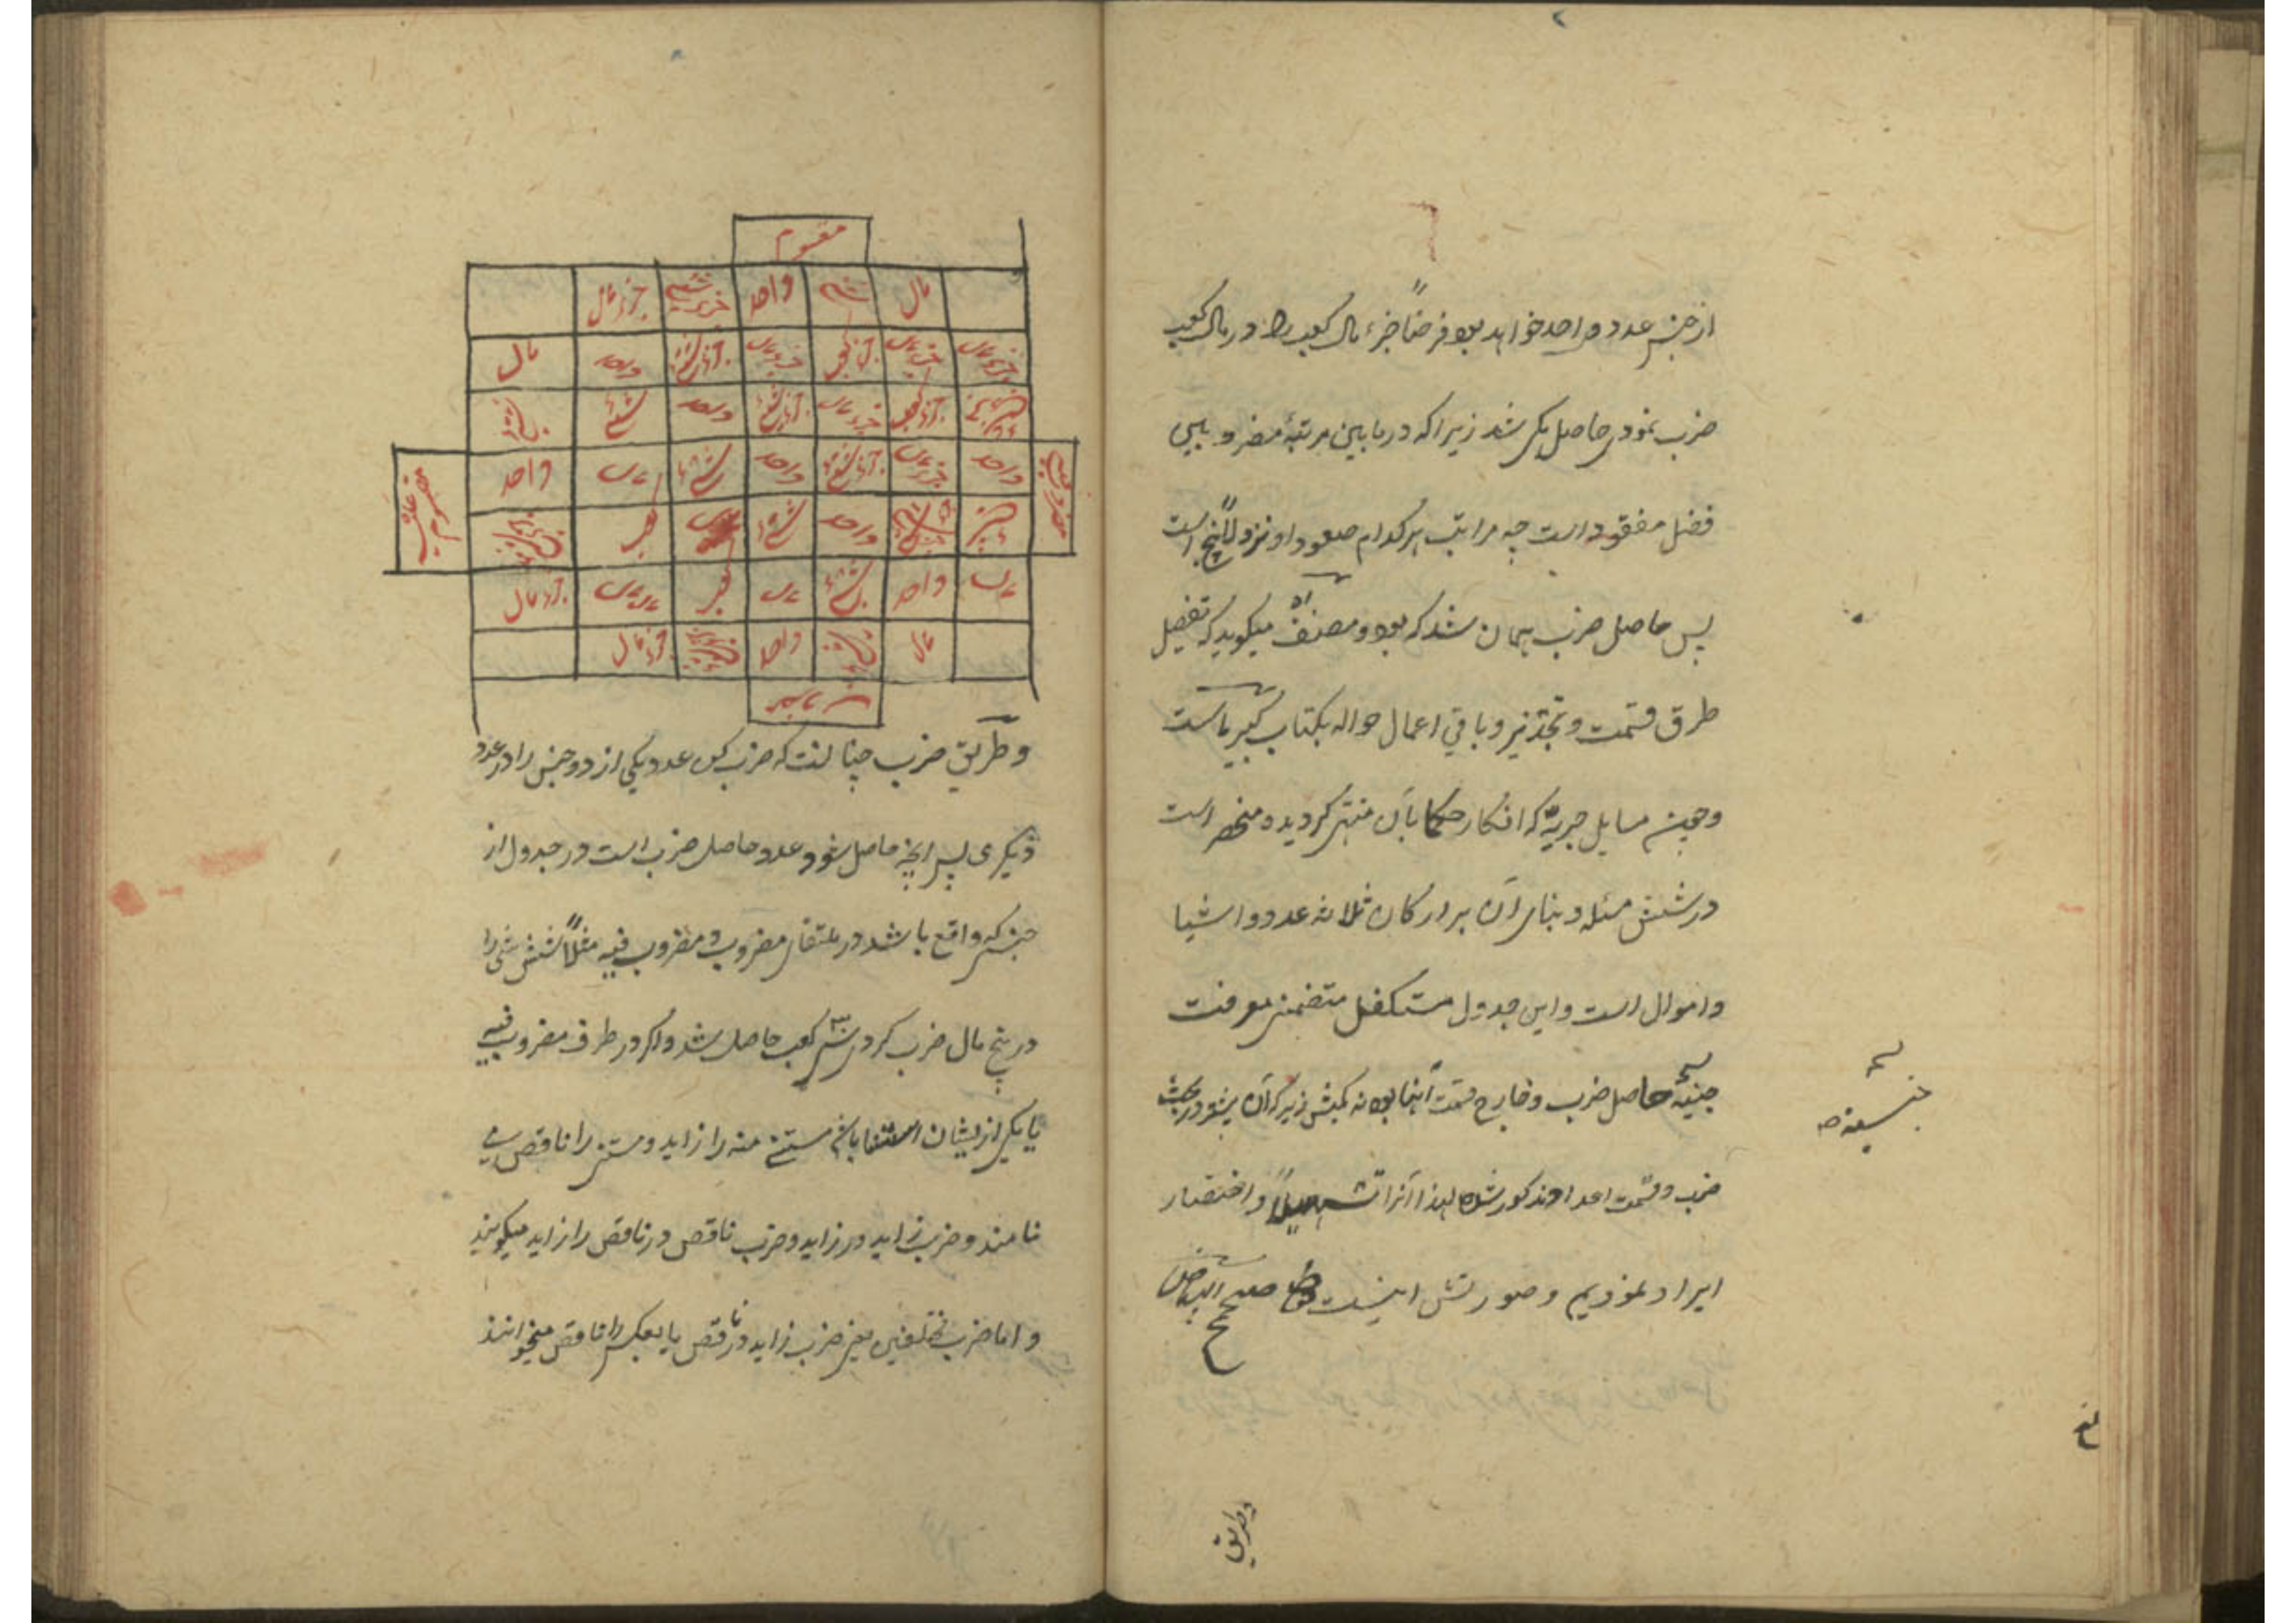 از جنس عدد واحد خواهد بود فرضاً جزء مال کعب را در مال کعب
ضرب نمودی حاصل یکی شد زیرا که در ما بین مرتبهٔ مضروبین
فضل مفقود است چه مراتب هر کدام صعودا و نزولاً پنج است
پس حاصل ضرب همان شد که بود و مصنف میکوید که تفصیل
طرق قسمت و تجذیر و باقی اعمال حواله بکتاب کبیر ماست
و چون مسایل جبریه که افکار حکما بآن منتهی کردیده منحصر است
در شش مسئله و بنای آن بر ارکان ثلاثه عدد و اشیا
و اموال است و این جدول متکفل متضمن معرفت
جنسیهٔ حاصل ضرب و خارج قسمت آنها بود نه کمیتش زیرا که آن در بحث
ضرب و قسمت اعداد مذکور شده لهذا آنرا تسهیلاً و اختصار
ایراد نمودیم و صورتش اینست صح البیاض
صح
جنسیته
وطریق
مقسوم
مال شئ واحد جزء شئ جزء مال
جزء مال جزء کعب جزء مال جزء شئ واحد مال
جزء شئ جزء کعب جزء مال جزء شئ واحد شئ شئ
مضروب فیه واحد جزء مال جزء شئ واحد شئ مال واحد مقسوم علیه
شئ جزء شئ واحد شئ مال کعب جزء شئ
مال واحد شئ مال کعب مال مال جزء مال
مال شئ واحد جزء شئ جزء مال
مضروب
و طریق ضرب چنانست که ضرب کن عدد یکی از دو جنس را در عدد
دیکری پس آنچه حاصل شود عدد حاصل ضرب است در جدول از
جنس که واقع باشد در ملتقای مضروب و مضروب فیه مثلاً شش شئ را
در پنج مال ضرب کردی سی کعب حاصل شد و اکر در طرف مضروب فیه
یا یکی از ایشان استثنا باشد مستثنی منه را زاید و مستثنی را ناقص
نامند و ضرب زاید در زاید و ضرب ناقص در ناقص را زاید میکویند
و اما ضرب مختلفین یعنی ضرب زاید در ناقص یا بعکس را ناقص میخوانند